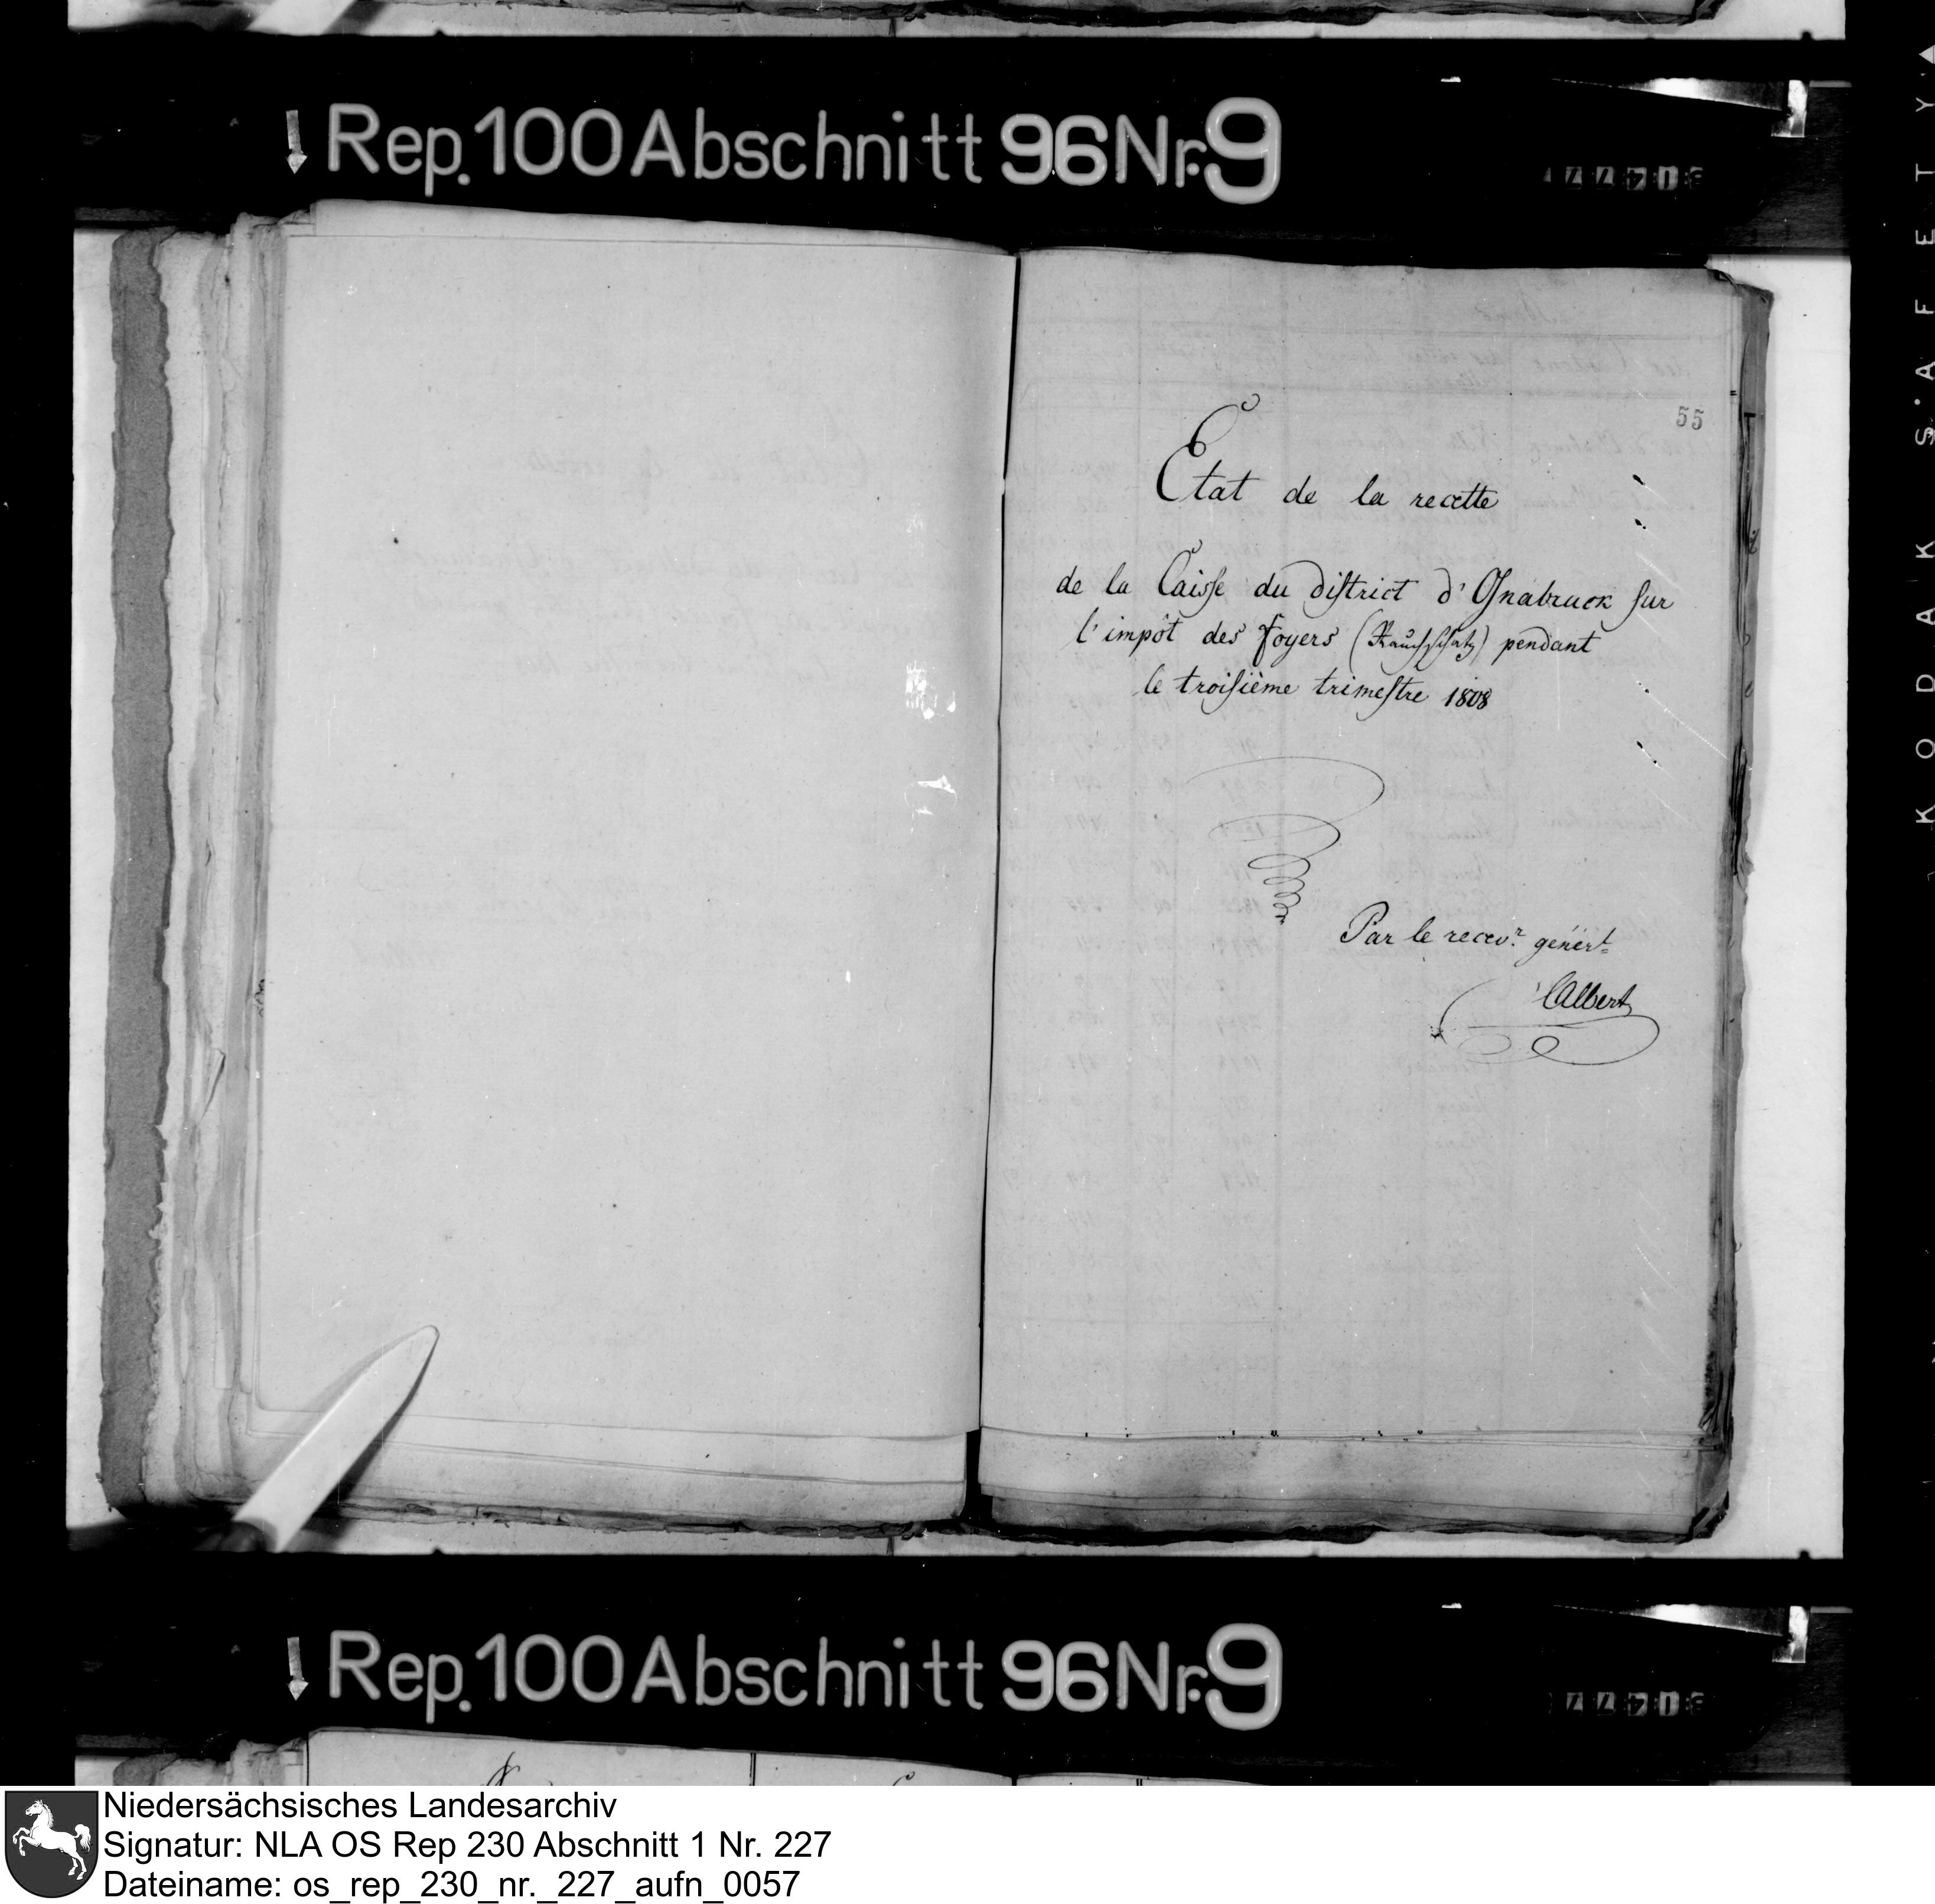 Rep. 100 Abschnitt 96 Nr. 9
55
Etat de la recette
de la Caisse du district d'Osnabruck sur
l'impôt des foyers (Rauchschatz) pendant
le troisième trimestre 1808
Par le recevr. générl
Albert
KODAK SAFETY
Rep. 100 Abschnitt 96 Nr. 9
Niedersächsisches Landesarchiv
Signatur: NLA OS Rep 230 Abschnitt 1 Nr. 227
Dateiname: os_rep_230_nr._227_aufn_0057